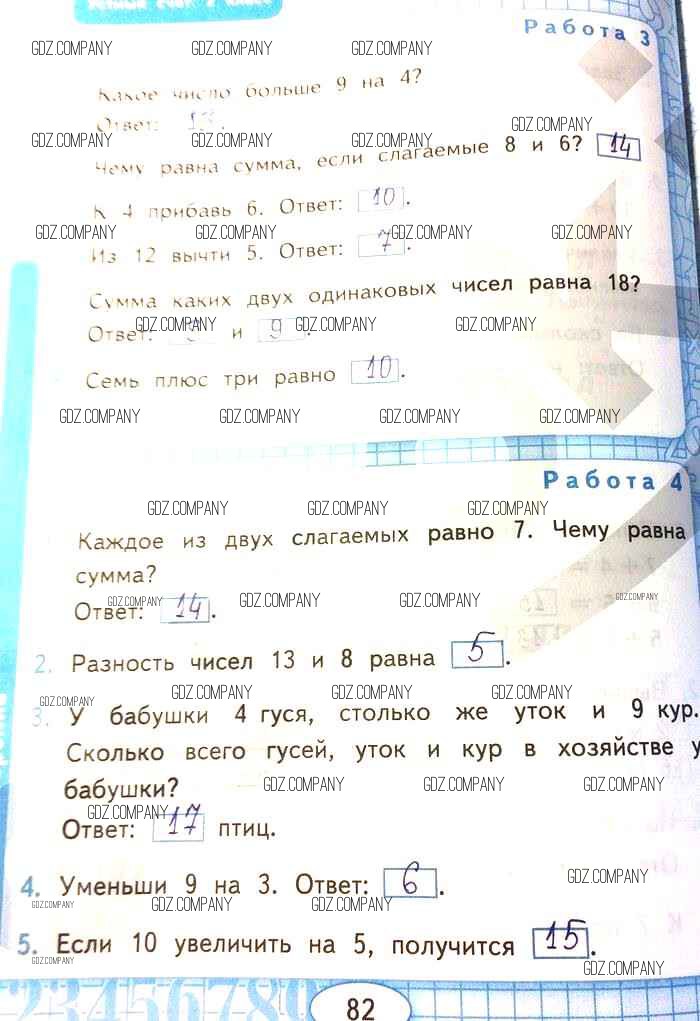 Устный счёт. 2 класс
Работа 3
GDZ.COMPANY GDZ.COMPANY GDZ.COMPANY
Какое число больше 9 на 4?
Ответ: 13.
GDZ.COMPANY
GDZ.COMPANY GDZ.COMPANY GDZ.COMPANY
Чему равна сумма, если слагаемые 8 и 6? 14
К 4 прибавь 6. Ответ: 10.
GDZ.COMPANY GDZ.COMPANY GDZ.COMPANY GDZ.COMPANY
Из 12 вычти 5. Ответ: 7.
Сумма каких двух одинаковых чисел равна 18?
Ответ: 9 и 9.
GDZ.COMPANY GDZ.COMPANY GDZ.COMPANY
Семь плюс три равно 10.
GDZ.COMPANY GDZ.COMPANY GDZ.COMPANY GDZ.COMPANY
Работа 4
GDZ.COMPANY GDZ.COMPANY GDZ.COMPANY
Каждое из двух слагаемых равно 7. Чему равна
сумма?
GDZ.COMPANY GDZ.COMPANY GDZ.COMPANY GDZ.COMPANY
Ответ: 14.
2. Разность чисел 13 и 8 равна 5.
GDZ.COMPANY GDZ.COMPANY GDZ.COMPANY GDZ.COMPANY
3. У бабушки 4 гуся, столько же уток и 9 кур.
Сколько всего гусей, уток и кур в хозяйстве у
бабушки?
GDZ.COMPANY GDZ.COMPANY GDZ.COMPANY
GDZ.COMPANY
Ответ: 17 птиц.
GDZ.COMPANY
4. Уменьши 9 на 3. Ответ: 6.
GDZ.COMPANY GDZ.COMPANY GDZ.COMPANY
5. Если 10 увеличить на 5, получится 15.
GDZ.COMPANY GDZ.COMPANY
23456789
82